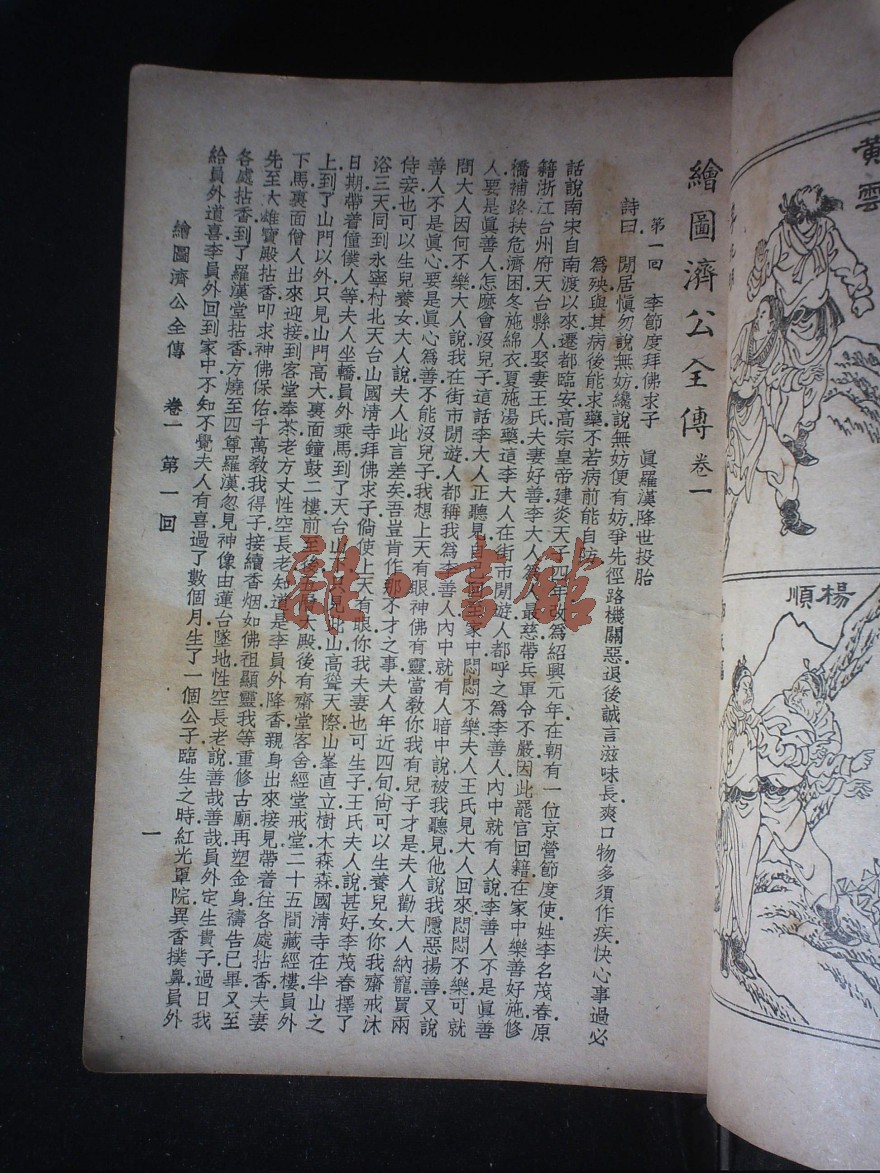 繪圖濟公全傳 卷一
第一回 李節度拜佛求子 眞羅漢降世投胎
詩曰 閒居愼勿說無妨纔說無妨便有妨爭先徑路機關惡退後誠言滋味長爽口物多須作疾快心事過必
爲殃與其病後能求藥不若病前能自防
話說南宋自南渡以來遷都臨安高宗皇帝建炎天子四年改爲紹興元年在朝有一位京營節度使姓李名茂春原
籍浙江台州府天台縣人娶妻王氏夫妻好善李大人爲人最慈帶兵軍令不嚴因此罷官回籍在家中樂善好施修
橋補路扶危濟困冬施綿衣夏施湯藥這李大人在街市閒遊人都呼之爲李善人內中就有人說李善人不是眞善
人要是眞善人怎麼會沒兒子這話李大人正聽見自己回至家中悶悶不樂夫人王氏見大人回來悶悶不樂可就
問大人因何不樂大人說我在街市閒遊人都稱我爲李善人內中就有人暗中說被我聽見他說我隱惡揚善又說
善人不是眞心要是眞心爲善不能沒兒子我想上天有眼神佛有靈當敎你我有兒子才是夫人勸大人納寵買兩
侍妾也可以生兒養女大人說夫人此言差矣吾豈肯作那不才之事夫人年近四旬尙可以生養兒女你我齋戒沐
浴三天同到永寧村北天台山國清寺拜佛求子倘使上天有眼你我夫妻也可生子王氏夫人說甚好李茂春擇了
日期帶着僮僕人等夫人坐轎員外乘馬到了天台山下只見此山高聳天際山峯直立樹木森森國清寺在半山之
上到了山門以外只見山門高大裏面鐘鼓二樓前至後五層大殿後有齋堂客舍經堂戒堂二十五間藏經樓員外
下馬裏面僧人出來迎接到客堂奉茶老方丈性空長老知道是李員外降香親身出來接見帶着往各處拈香夫妻
先至大雄寶殿拈香叩求神佛保佑千萬敎我得子接續香烟如佛祖顯靈我等重修古廟再塑金身禱告已畢又至
各處拈香到了羅漢堂拈香方燒至四尊羅漢忽見神像由蓮台墜地性空長老說善哉善哉員外定生貴子過日我
給員外道喜李員外回到家中不知不覺夫人有喜過了數個月生了一個公子臨生之時紅光罩院異香撲鼻員外
繪圖濟公全傳 卷一 第一回
一
黃雲
楊順
雜·書館